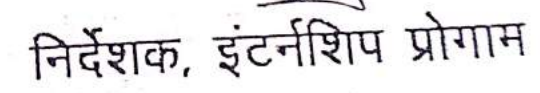 निर्देशक, इंटर्नशिप प्रोगाम